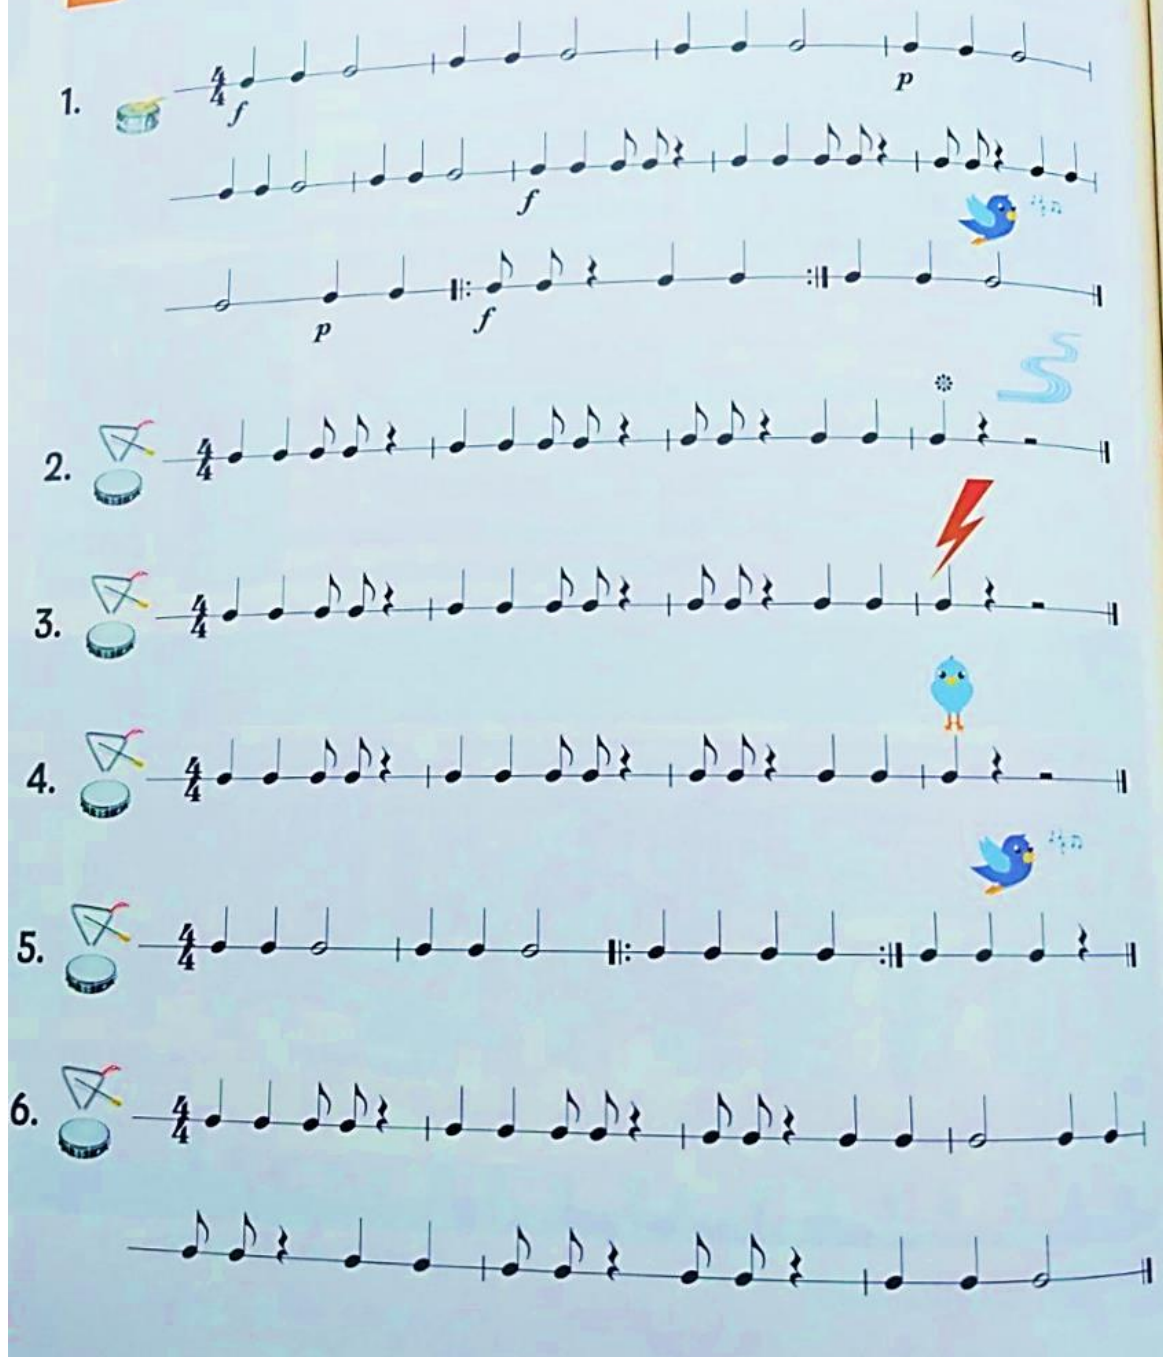 1. 4/4 f p
f
p f
2. 4/4
3. 4/4
4. 4/4
5. 4/4
6. 4/4